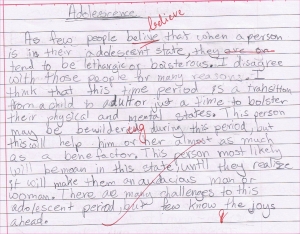 Adolescence
believe
As few people belive that when a person
is in their adolescent state, they are or
tend to be lethargic or boisterous. I disagree
with those people for many reasons. I
think that this time period is a transition
from a child to adult or just a time to bolster
their physical and mental states. This person
may be bewildering during this period, but
this will help him or her almost as much
as a benefactor. This person most likely
will be moan in this state until they realize
it will make them an audacious man or
woman. There are many challenges to this
adolescent period, but few know the joys
ahead.